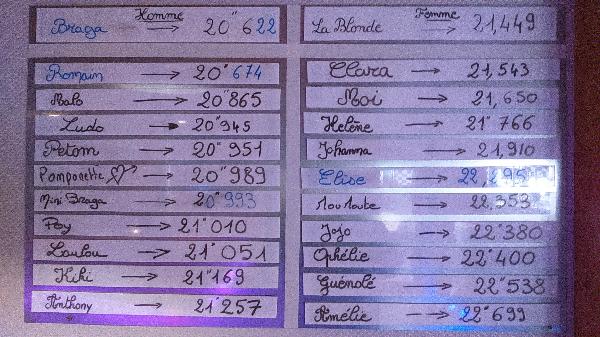 Homme
Braga → 20"622
Romain → 20"674
Malo → 20"865
Ludo → 20"945
Petom → 20"951
Pomponette → 20"989
Mini Braga → 20"993
Poy → 21"010
Loulou → 21"051
Kiki → 21"169
Anthony → 21"257
Femme
La Blonde → 21,449
Clara → 21,543
Moi → 21,650
Helène → 21"766
Johanna → 21,910
Elise → 22,295
Moumoute → 22,353
Jojo → 22"380
Ophélie → 22"400
Guénolé → 22"538
Amélie → 22"699